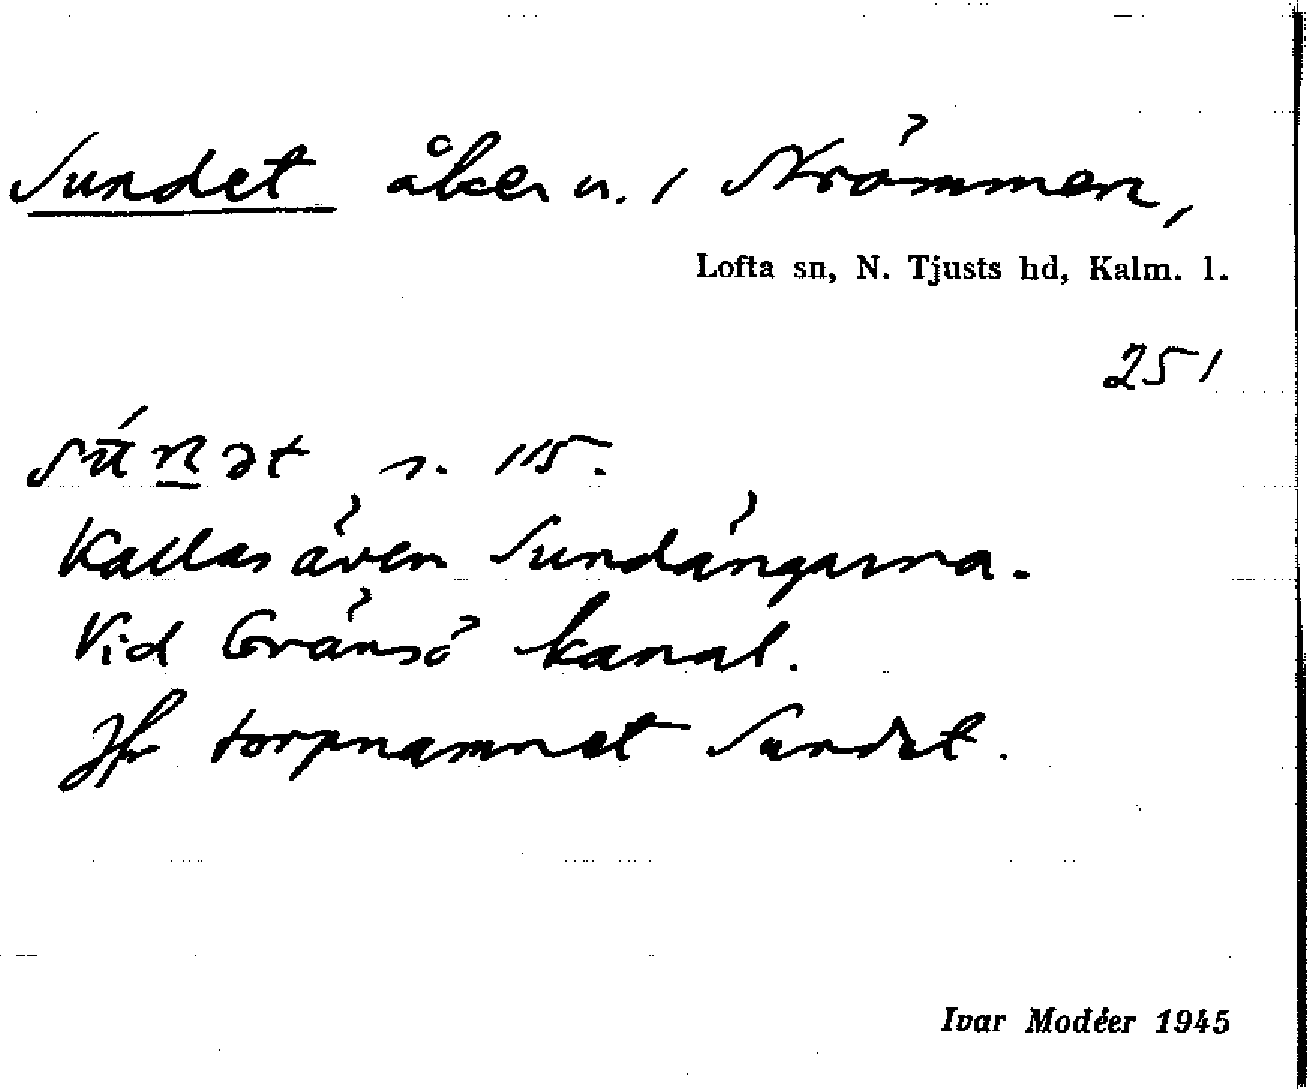 Sundet åker u. / Strömmen,
Lofta sn, N. Tjusts hd, Kalm. l.
251
s. 115.
Kallas även Sundängarna.
Vid Gränsö kanal.
Jfr torpnamnet Sundet.
Ivar Modéer 1945